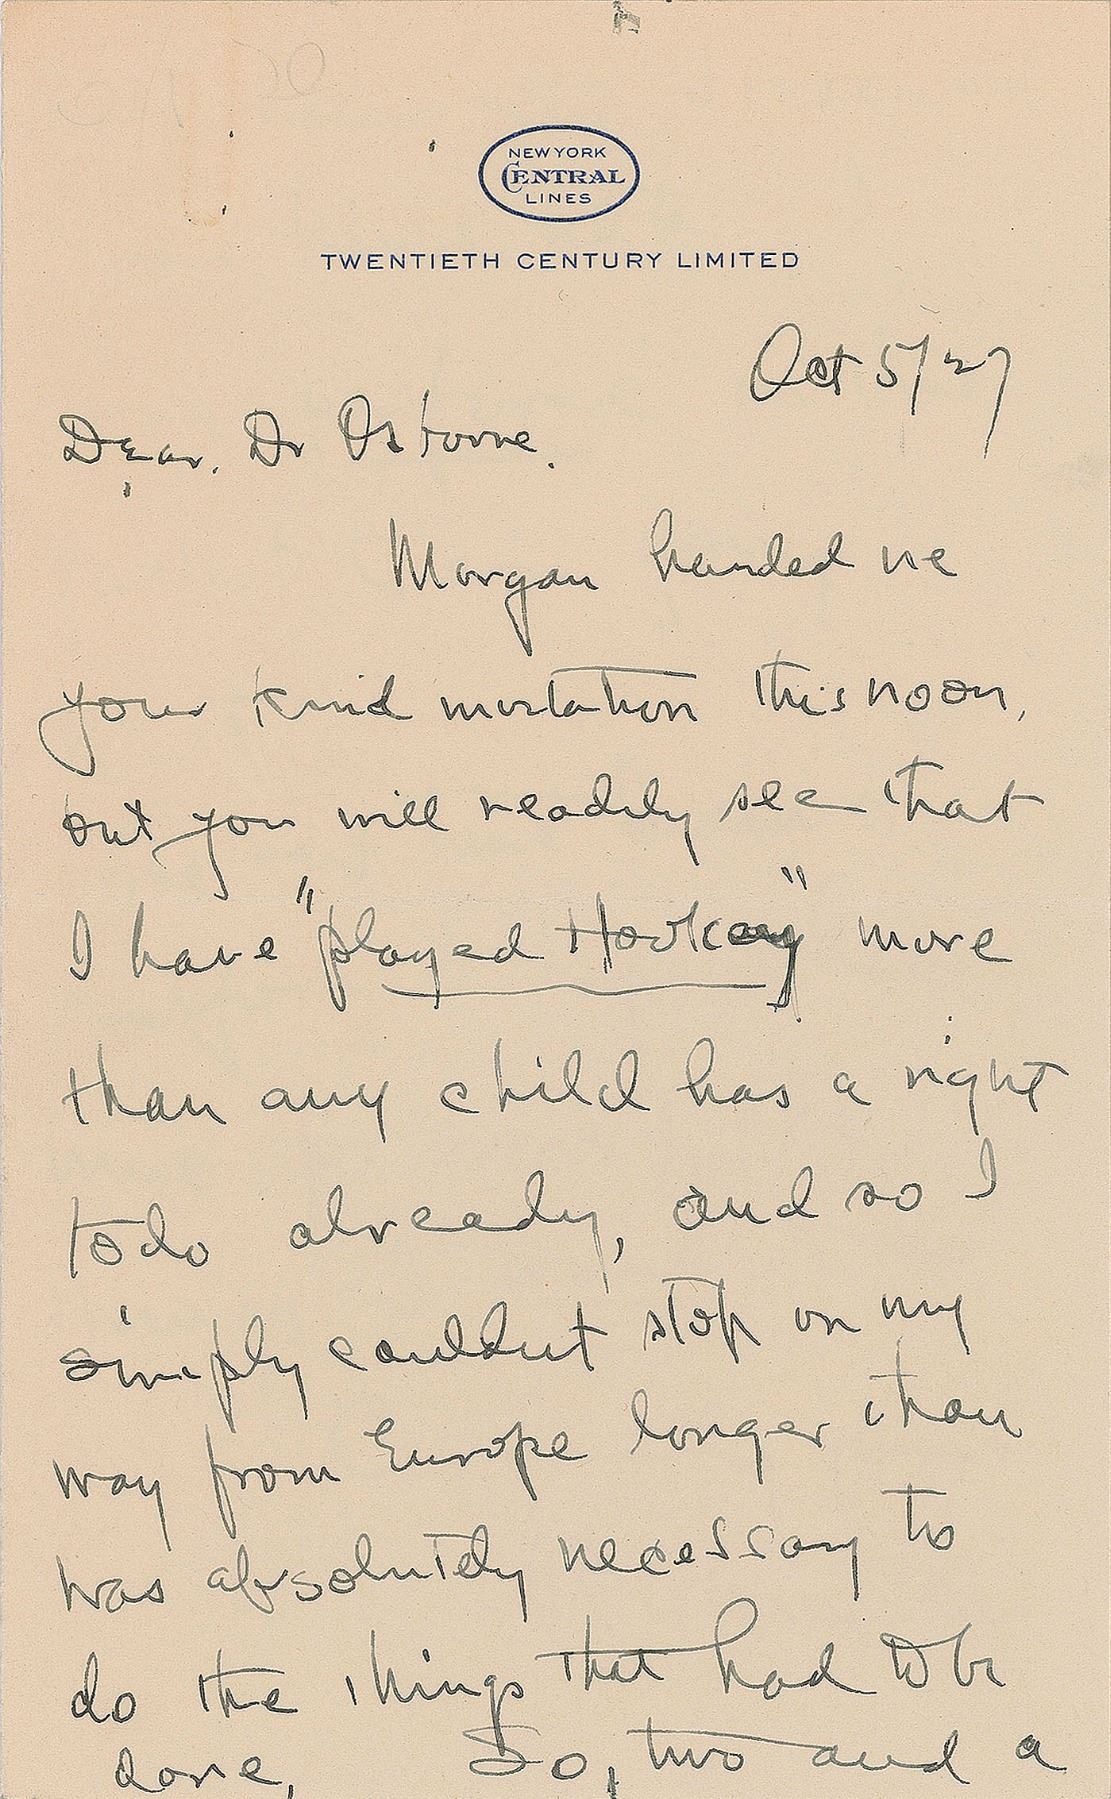 NEW YORK
CENTRAL
LINES
TWENTIETH CENTURY LIMITED
Oct 5/27
Dear Dr Osborne.
Morgan handed me
your kind invitation this noon,
but you will readily see that
I have "played Hookey" more
than any child has a right
to do already, and so I
simply couldnt stop on my
way from Europe longer than
was absolutely necessary to
do the things that had to be
done, So, two and a